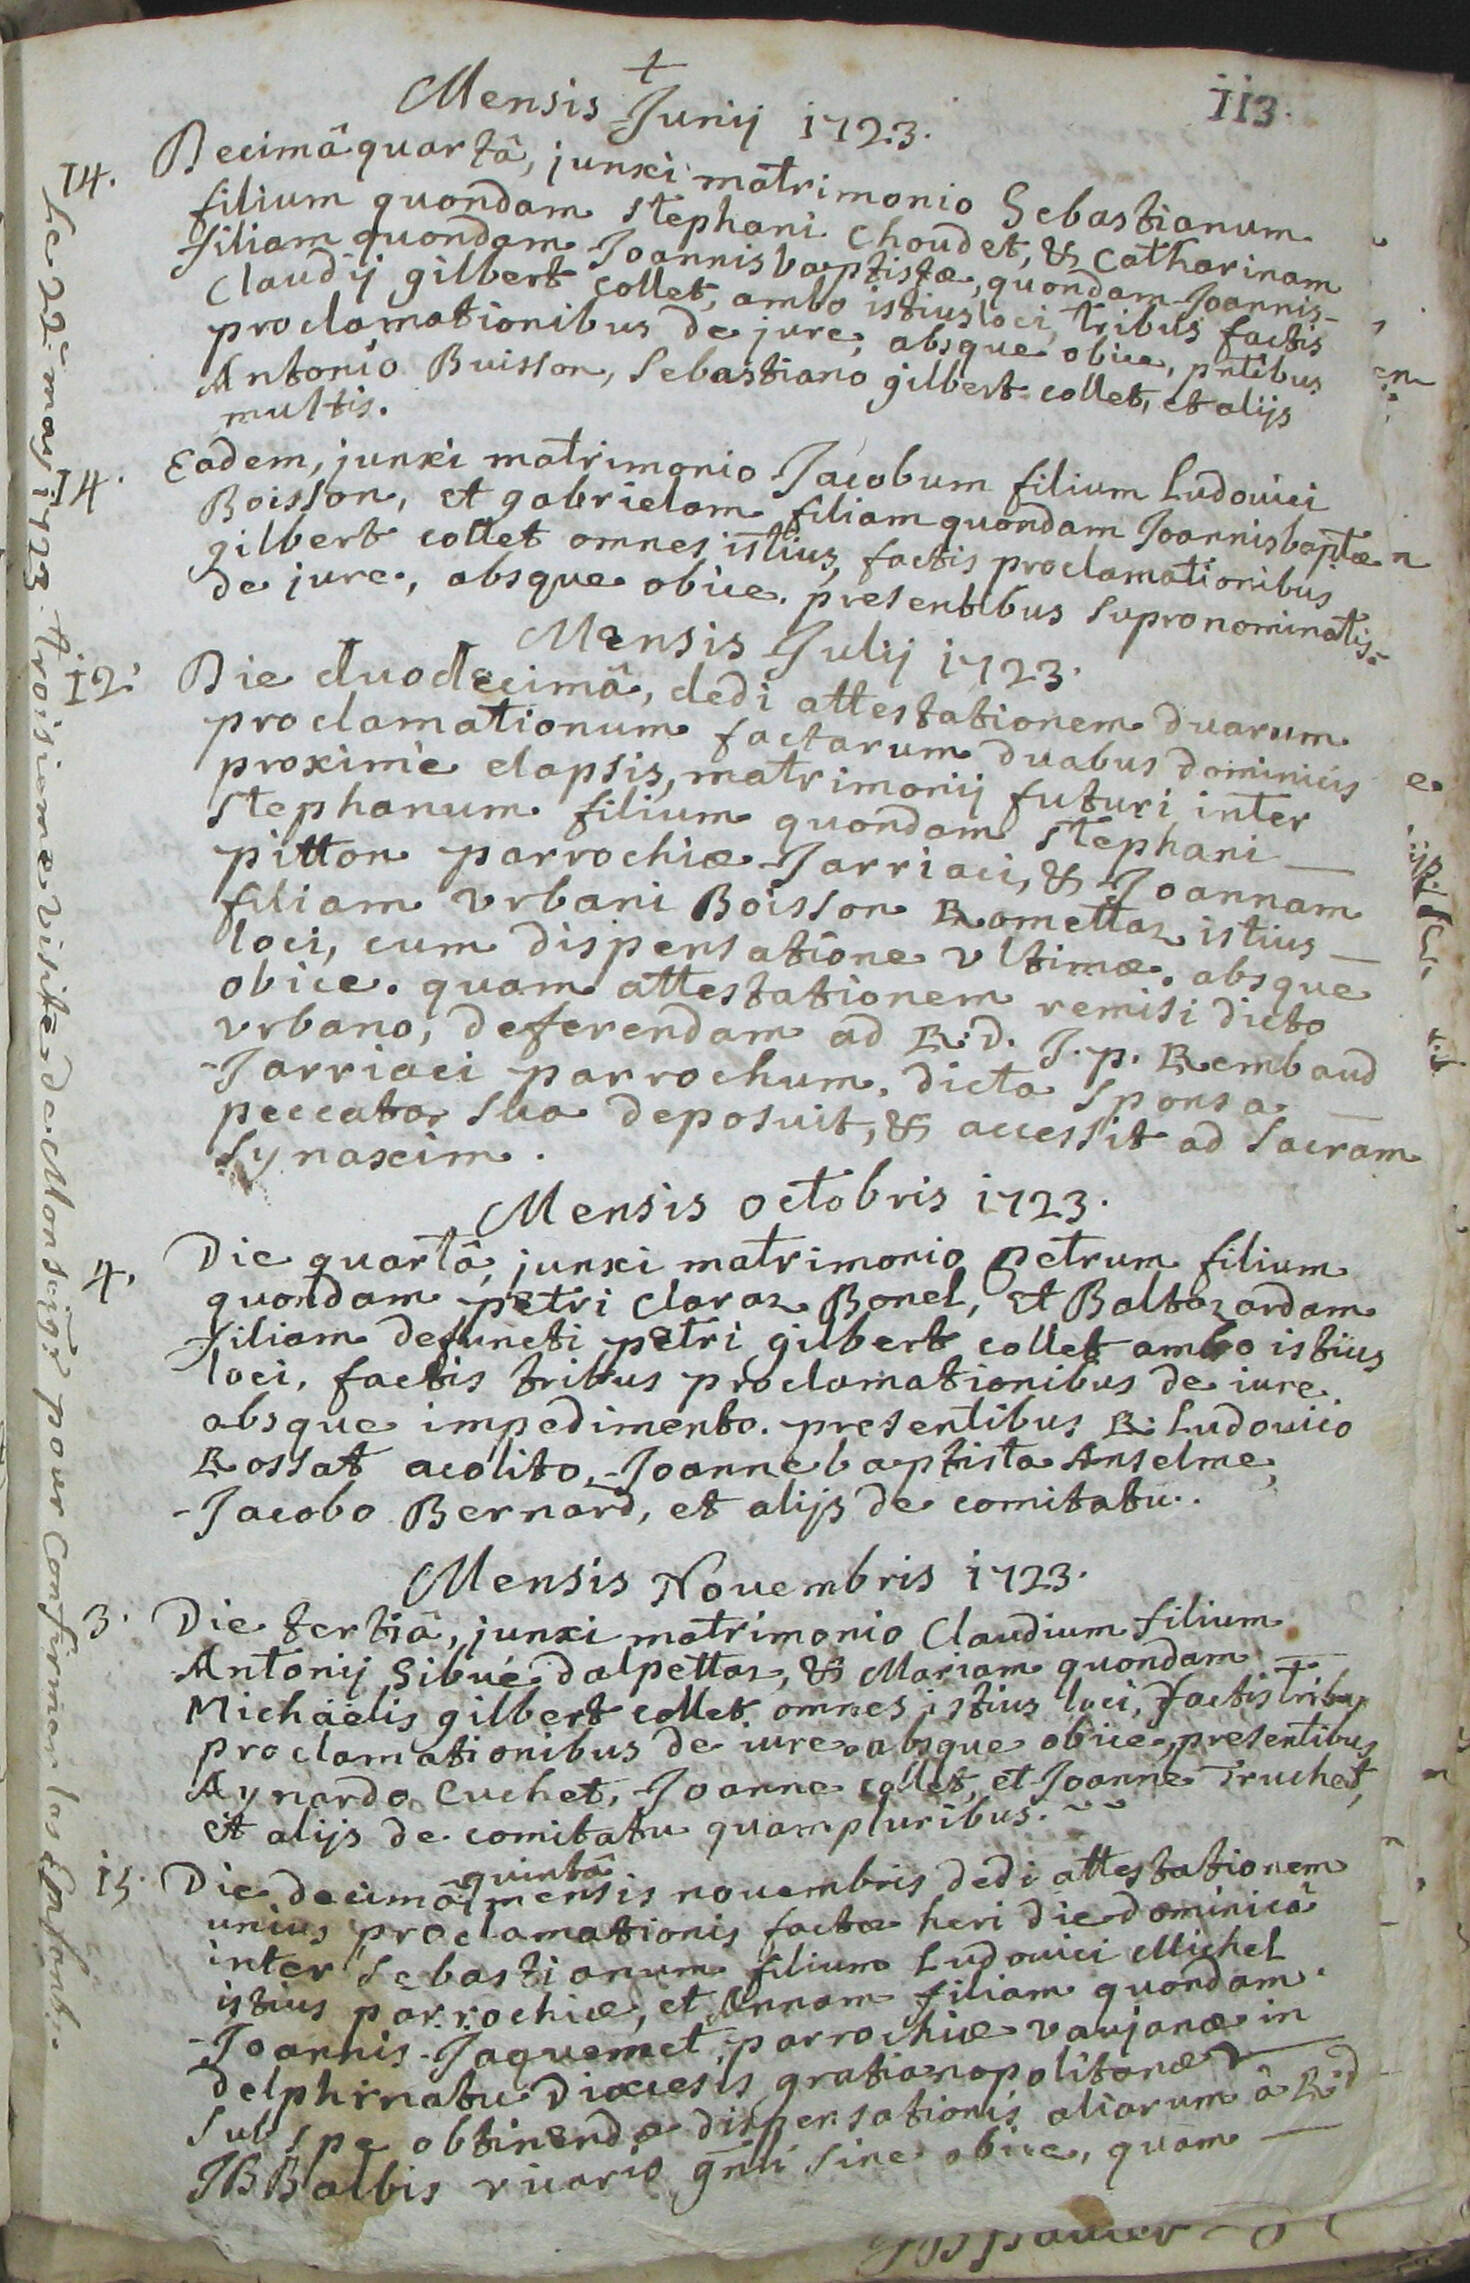 +
113.
Mensis Junij 1723.
14. Decimâ quartâ, junxi matrimonio Sebastianum
filium quondam stephani Choudet, & Catharinam
filiam quondam Joannisbaptistæ, quondam Joannis-
Claudij gilbert collet, ambo istius loci, tribus factis
proclamationibus de jure, absque obice, pntibus
Antonio Buisson, Sebastiano gilbert collet, et alijs
multis.
14. Eadem, junxi matrimonio Jacobum filium Ludouici
Boisson, et gabrielam filiam quondam Joannisbaptæ
gilbert collet omnes istius, factis proclamationibus
de jure, absque obice. presentibus supranominatis.
Mensis Julij 1723.
12. Die duodecimâ, dedi attestationem duarum
proclamationum factarum duabus dominicis
proximè elapsis, matrimonij futuri inter
stephanum filium quondam stephani
pitton parrochiæ Jarriaci, & Joannam
filiam vrbani Boisson Ramettaz istius
loci, cum dispensatione vltimæ. absque
obice. quam attestationem remisi dicto
vrbano, deferendam ad R.d. J. p. Rembaud
Jarriaci parrochum. dicta sponsa
peccata sua deposuit, & accessit ad sacram
synaxim.
Mensis octobris 1723.
4. Die quartâ, junxi matrimonio petrum filium
quondam petri claraz Bonel, et Baltazardam
filiam defuncti petri gilbert collet ambo istius
loci, factis tribus proclamationibus de iure
absque impedimento. presentibus R. Ludouico
Rossat acolito, Joannebaptista Anselme,
Jacobo Bernard, et alijs de comitatu.
Mensis Nouembris 1723.
3. Die tertiâ, junxi matrimonio Claudium filium
Antonij Sibué dalpettaz, & Mariam quondam
Michaëlis gilbert collet omnes istius loci, factis tribus
proclamationibus de iure absque obice, presentibus
Aynardo Cuchet, Joanne collet, et Joanne Truchet,
et alijs de comitatu quampluribus.
15. Die decimâ quintâ mensis nouembris dedi attestationem
unius proclamationis factæ heri die dominicâ
inter Sebastianum filium Ludouici Michel
istius parrochiæ, et Annam filiam quondam
Joannis Jaquemet, parrochiæ vaujanæ in
delphinatu Diœcesis gratianopolitanæ
sub spe obtinendæ dispensationis aliarum â R.d
JB Balbis vicario gnli sine obice, quam
Le 22e may 1723. troisieme visite de Monseigr pour Confirmer les Enfants.